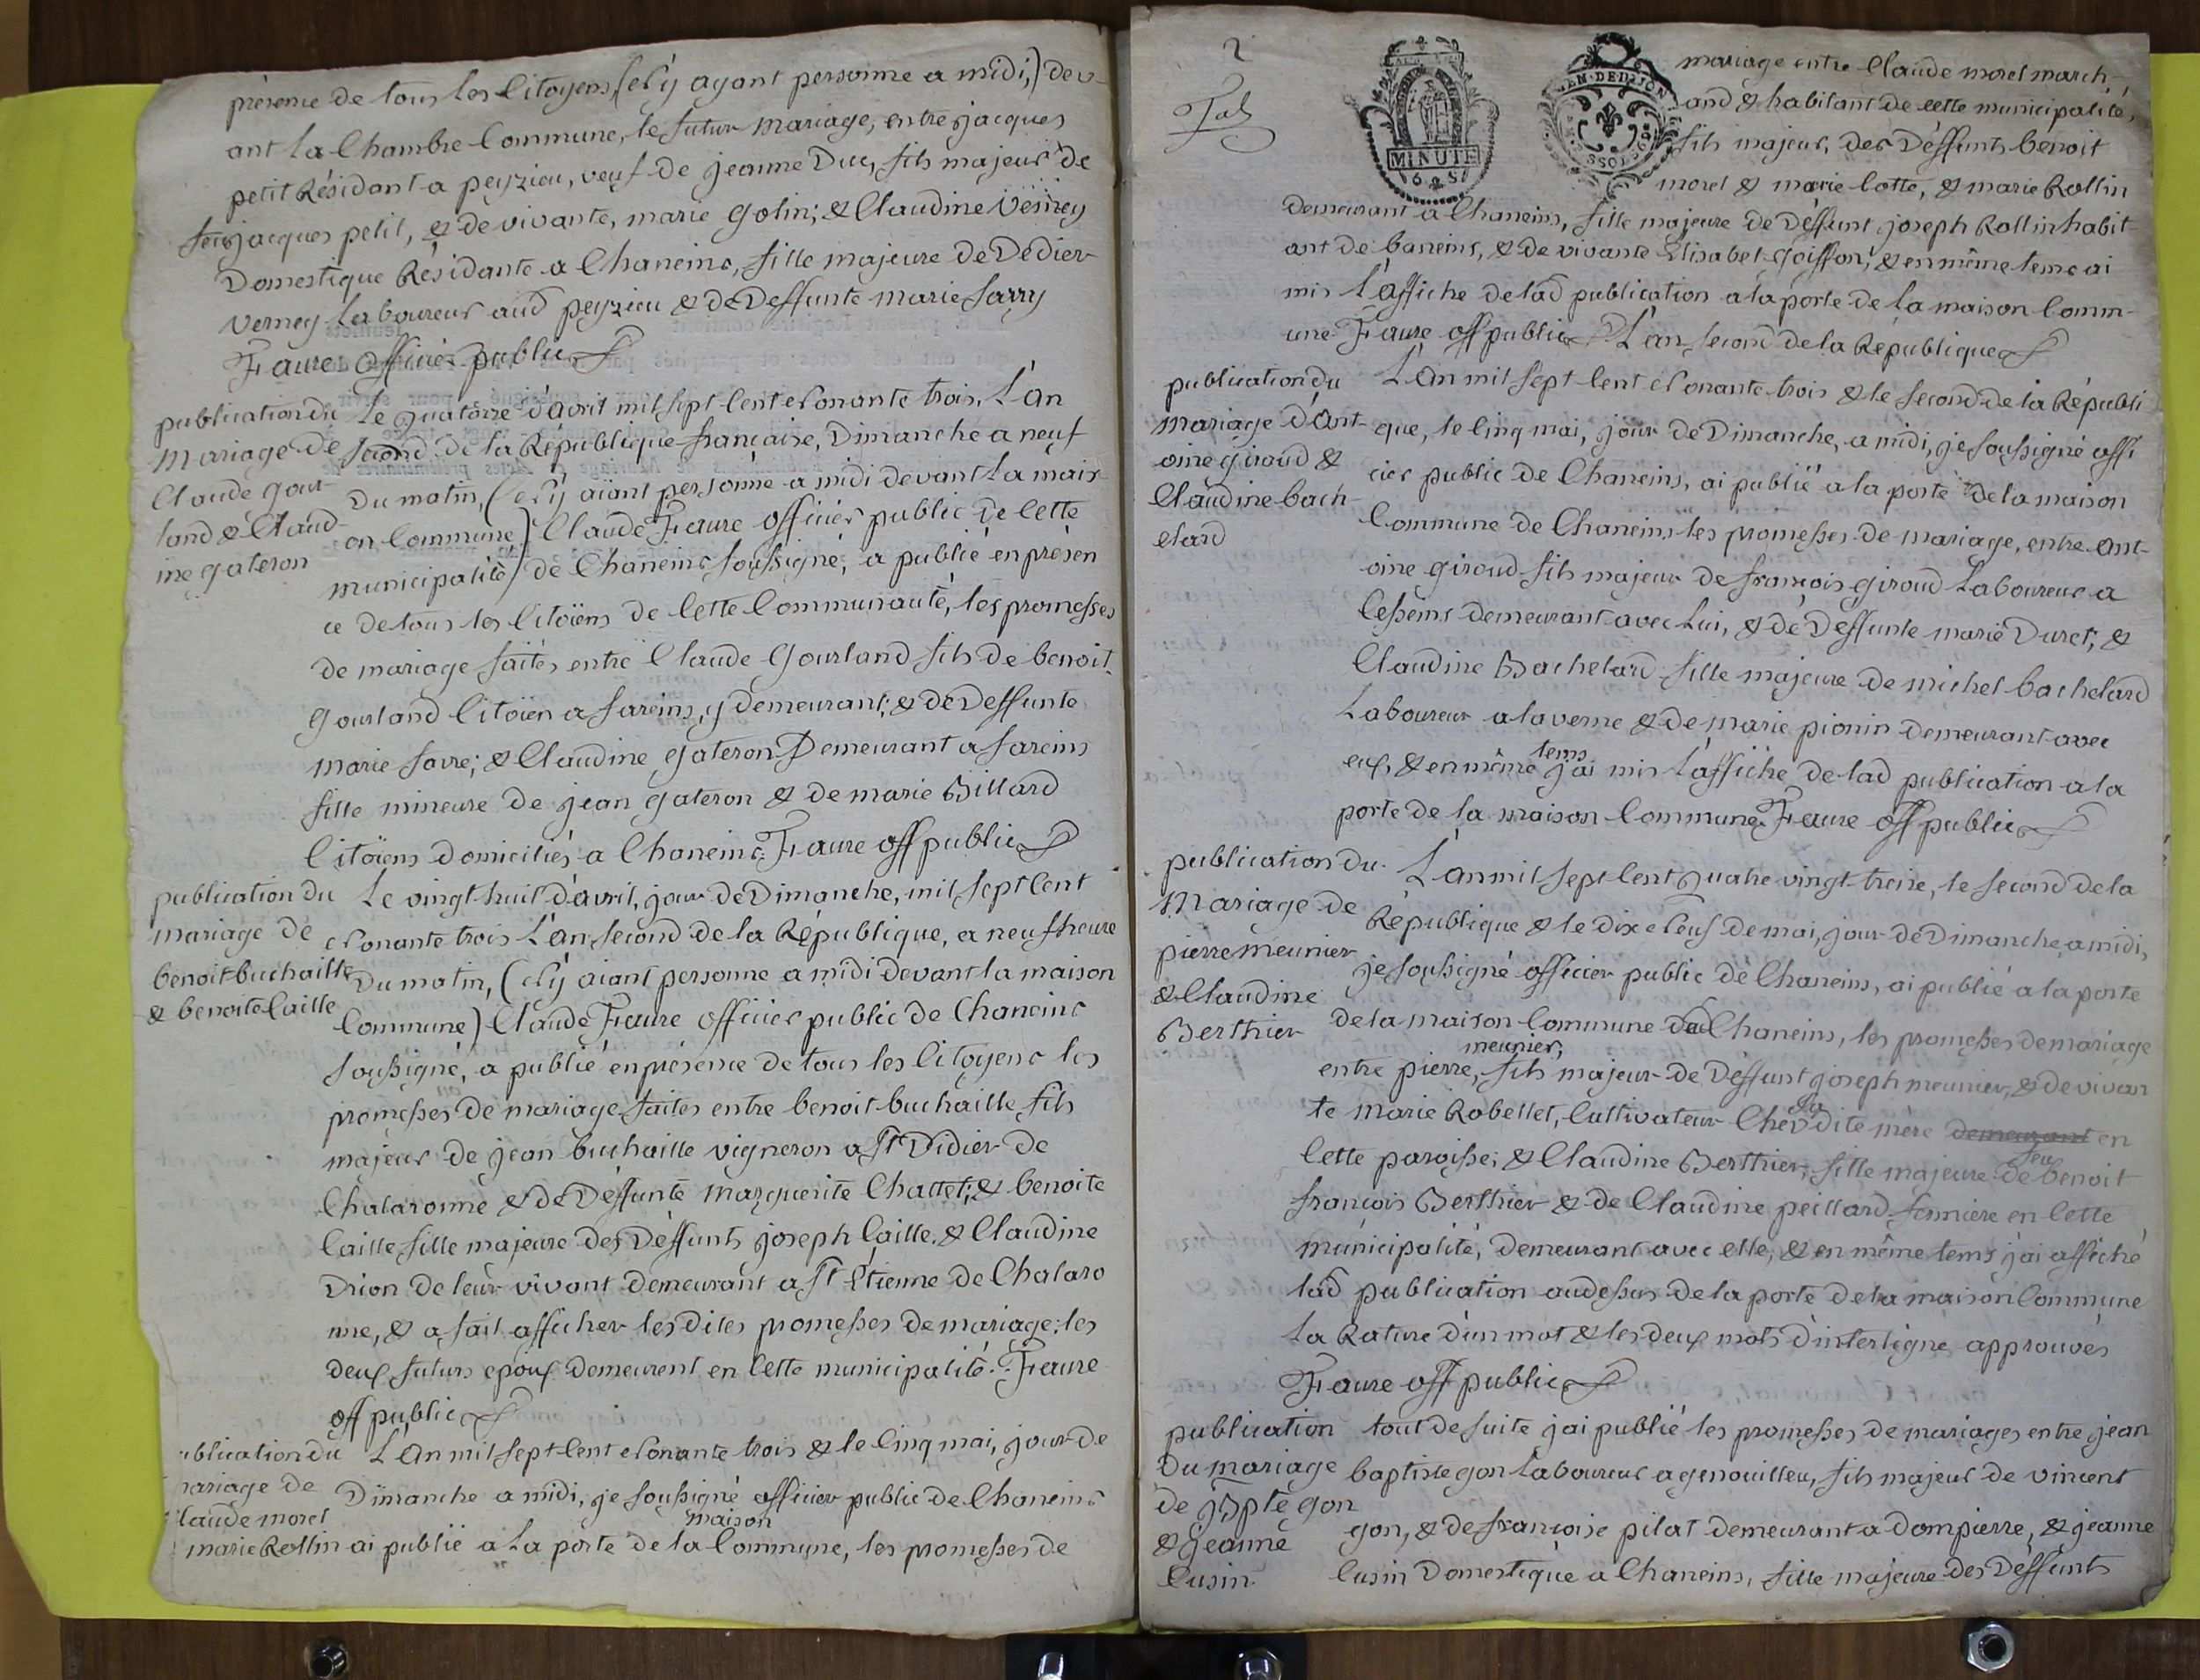 présence de tous les Citoyens, (et n'y ayant personne a midi,) dev-
ant la Chambre Commune, le futur mariage, entre jacques
petit Résidant a peyzieu, veuf de jeanne Duc, fils majeur de
feu jacques petit, & de vivante, marie golin; & Claudine Verney
Domestique Résidante a Chaneins, fille majeure de Dedier
Verney Laboureur aud peyzieu & de Deffunte marie sarry
Faure officier public
publication du
mariage de
Claude gour-
land & Claud-
ine gateron
Le quatorze d'avril mil sept Cent nonante trois, L'an
second de la République française, Dimanche a neuf
Du matin, (n'y aïant personne a midi devant La mais-
on Commune) Claude Faure officier public de Cette
municipalité de Chaneins soussigné, a publié en présen
ce de tous les Citoïens de Cette Communauté, les promesses
de mariage faites entre Claude Gourland fils de benoit
Gourland Citoïen a fareins, y demeurant; & de Deffunte
marie favre; & Claudine gateron Demeurant a fareins
fille mineure de jean gateron & de marie Billard
Citoïens domiciliés a Chaneins. Faure off public
publication du
mariage de
benoit buchaille
& benoite Caille
Le vingt huit d'avril, jour de Dimanche, mil sept Cent
nonante trois L'an second de la République, a neuf heure
Du matin, (n'y aiant personne a midi devant la maison
Commune) Claude Faure officier public de Chaneins
soussigné, a publié en présence de tous les Citoyens les
promesses de mariage faites entre benoit buchaille fils
majeur de jean buchaille vigneron a St Didier de
Chalaronne & de Deffunte marguerite Chattet; & benoite
Caille fille majeure des Deffunts joseph Caille & Claudine
Drion de leur vivant demeurant a St Etienne de Chalaro
nne, & a fait afficher les dites promesses de mariage; les
deux futurs epoux demeurent en Cette municipalité. Faure
off public
ublication du
ariage de
laude morel
marie Rollin
L'an mil sept Cent nonante trois & le Cinq mai, jour de
Dimanche a midi, je soussigné officier public de Chaneins
maison
ai publié a La porte de la Commune, les promesses de
2
MINUTE
6 S
mariage entre Claude morel march-
and & habitant de cette municipalité,
fils majeur, des Deffunts benoit
morel & marie Cotte, & marie Rollin
Demeurant a Chaneins, fille majeure de Deffunt joseph Rollin habit-
ant de baneins, & de vivante Elisabet goiffon; & en même tems ai
mis L'affiche de lad publication a la porte de la maison Comm-
une. Faure off public L'an second de la République
publication du
mariage d'Ant-
oine giroud &
Claudine bach
elard
L'an mil sept Cent nonante trois & le second de la Républi
que, le Cinq mai, jour de Dimanche, a midi, je soussigné offi
cier public de Chaneins, ai publié a la porte de la maison
Commune de Chaneins les promesses de mariage, entre Ant-
oine giroud fils majeur de françois giroud Laboureur a
Cesseins demeurant avec Lui, & de Deffunte marie Duret; &
Claudine Bachelard fille majeure de michel bachelard
Laboureur a laverne & de marie pionin demeurant avec
tems
eux, & en même j'ai mis L'affiche de lad publication a la
porte de la maison Commune. Faure off public
publication du
mariage de
pierre meunier
& Claudine
Berthier
L'an mil sept Cent quatre vingt treize, le second de la
République & le dix neuf de mai, jour de Dimanche a midi,
je soussigné officier public de Chaneins, ai publié a la porte
de la maison Commune de Chaneins, les promesses de mariage
meunier,
entre pierre, fils majeur de Deffunt joseph meunier, & de vivan
te marie Robellet, Cultivateur Chez la dite mère demeurant en
feu
Cette paroisse; & Claudine Berthier, fille majeure de benoit
françois Berthier & de Claudine peillard fermière en Cette
municipalité, demeurant avec elle, & en même tems j'ai affiché
lad publication audessus de la porte de la maison Commune
La Rature d'un mot & les deux mots d'interligne approuvés
Faure off public
publication
Du mariage
de j Bpte gon
& jeanne
Cusin
tout de suite j'ai publié les promesses de mariages entre jean
baptiste gon Laboureur a genouilleu, fils majeur de vincent
gon, & de françoise pilat demeurant a Dompierre, & jeanne
Cusin Domestique a Chaneins, fille majeure des Deffunts